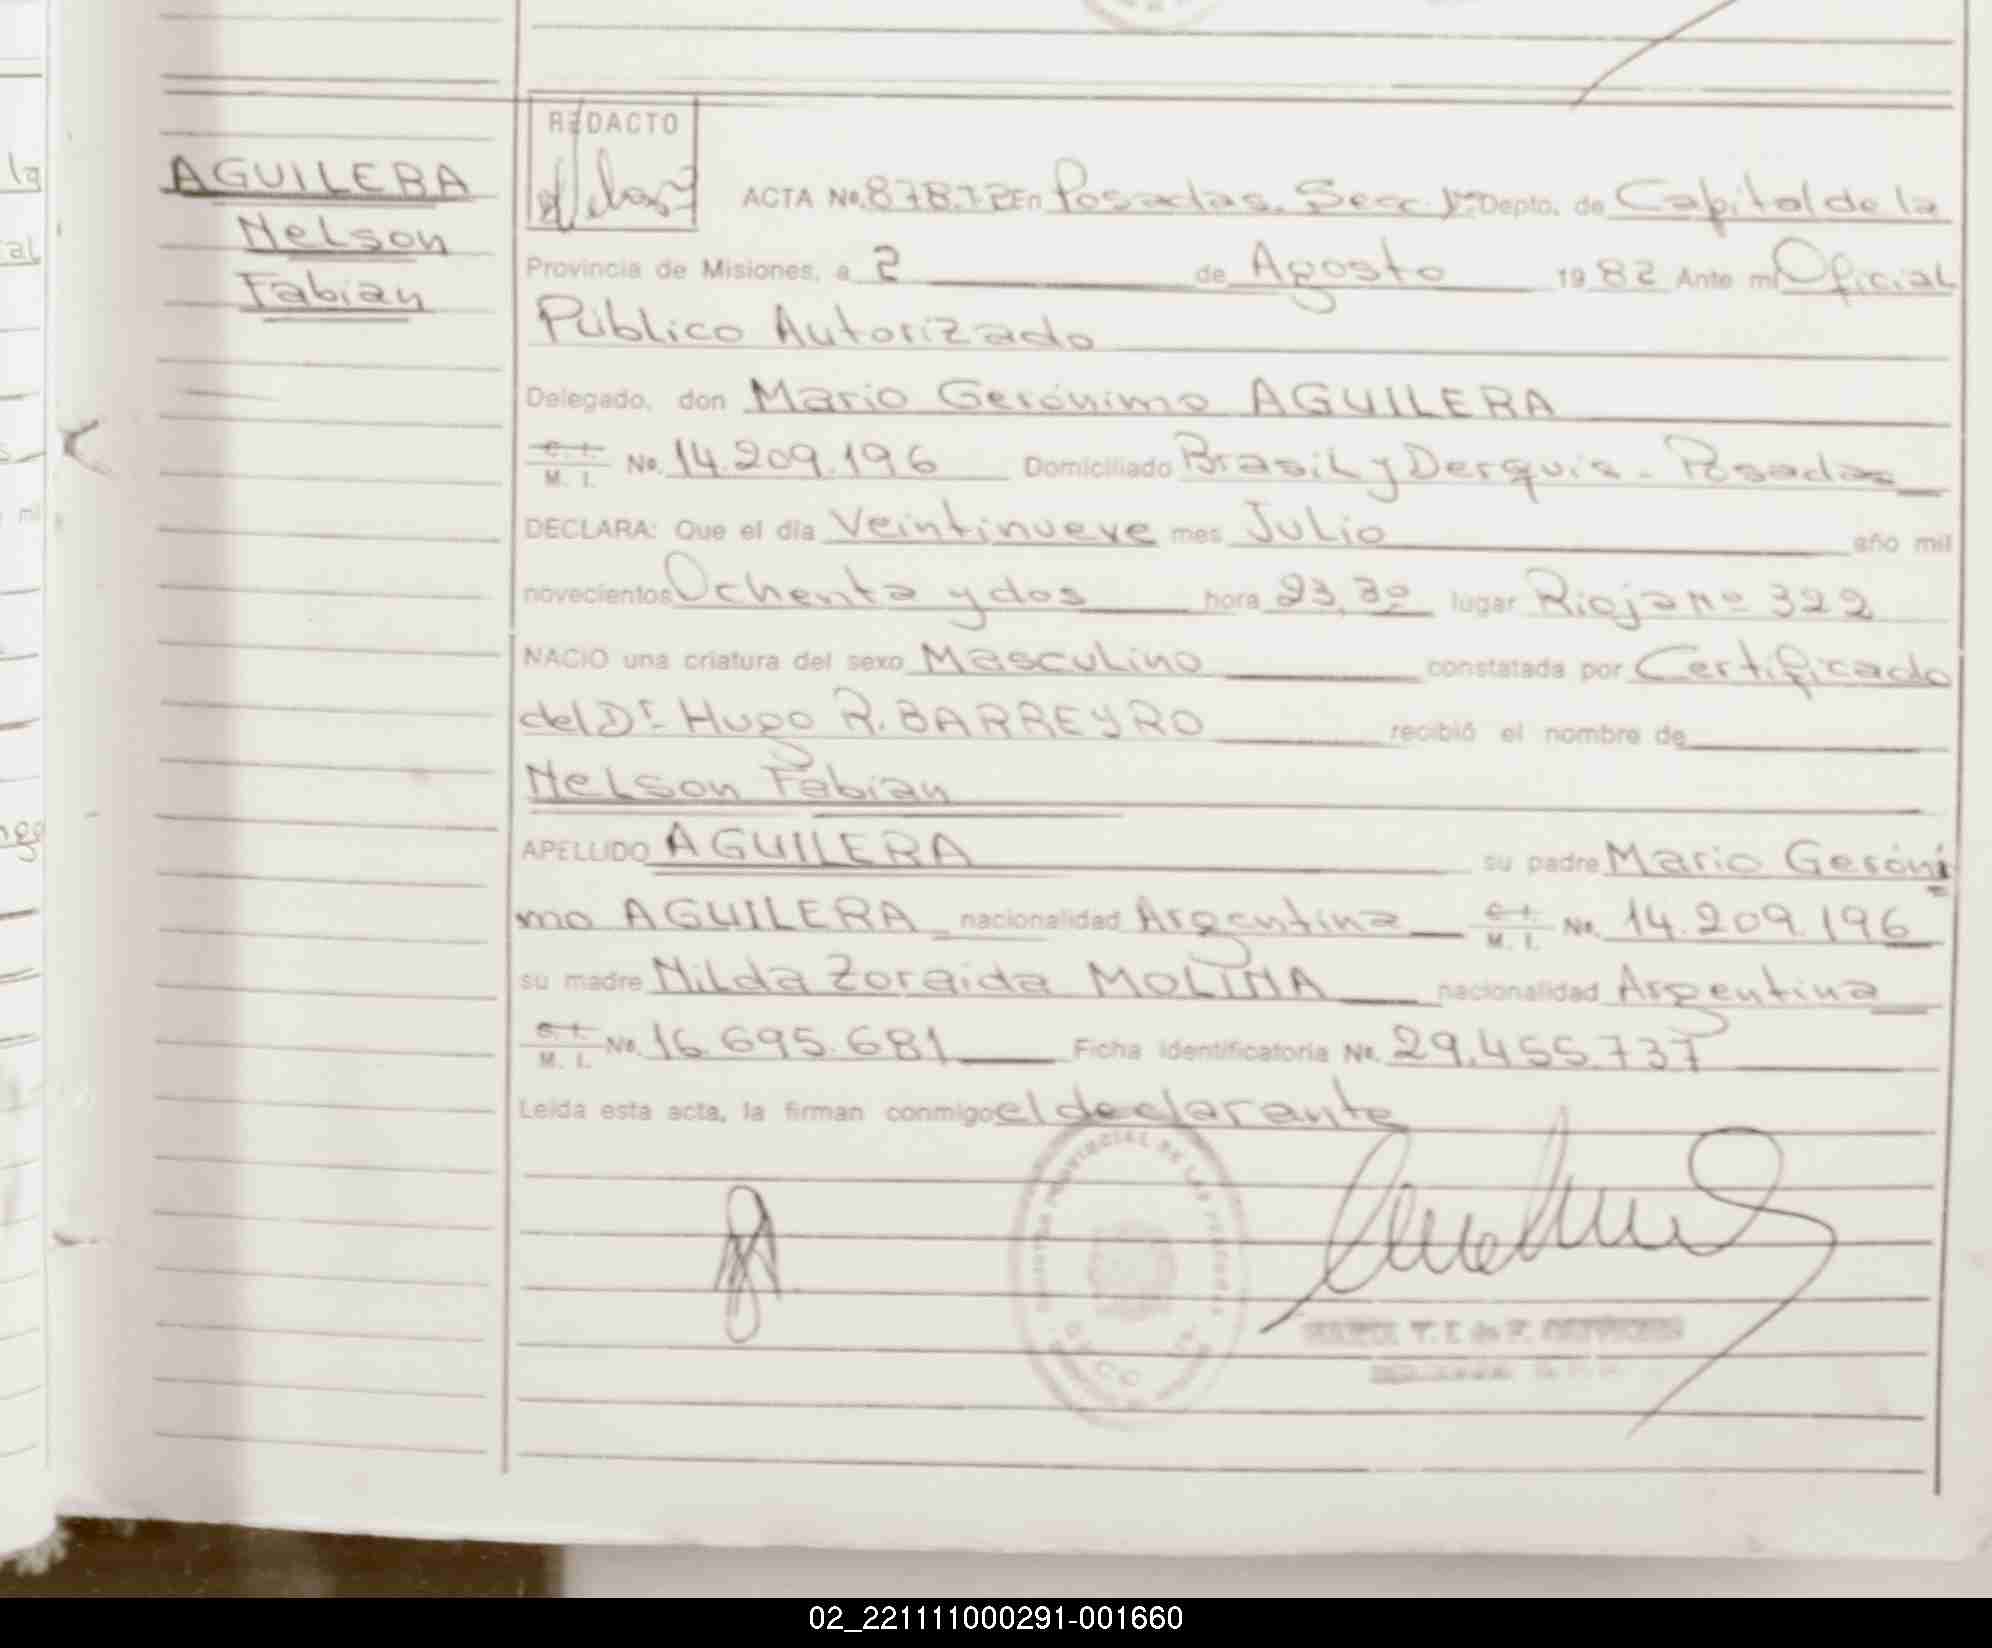 la
AGUILERA
Nelson
Fabian
REDACTO
ACTA No. 878.T2 En Posadas, Secc. 1ra Depto. de Capital de la
Provincia de Misiones, a 2 de Agosto 1982 Ante mí Oficial
Público Autorizado
Delegado, don Mario Gerónimo AGUILERA
C. I. M. I. No. 14.209.196 Domiciliado Brasil y Derquis - Posadas
DECLARA: Que el día Veintinueve mes Julio año mil
novecientos Ochenta y dos hora 23,30 lugar Rioja nº 322
NACIO una criatura del sexo Masculino constatada por Certificado
del Dr. Hugo R. BARREYRO recibió el nombre de
Nelson Fabian
APELLIDO AGUILERA su padre Mario Geróni
mo AGUILERA nacionalidad Argentina C. I. M. I. No. 14.209.196
su madre Nilda Zoraida MOLINA nacionalidad Argentina
C. I. M. I. No. 16.695.681 Ficha identificatoria No. 29.455.737
Leída esta acta, la firman conmigo el declarante
PROVINCIAL DE LAS PERSONAS
02_221111000291-001660